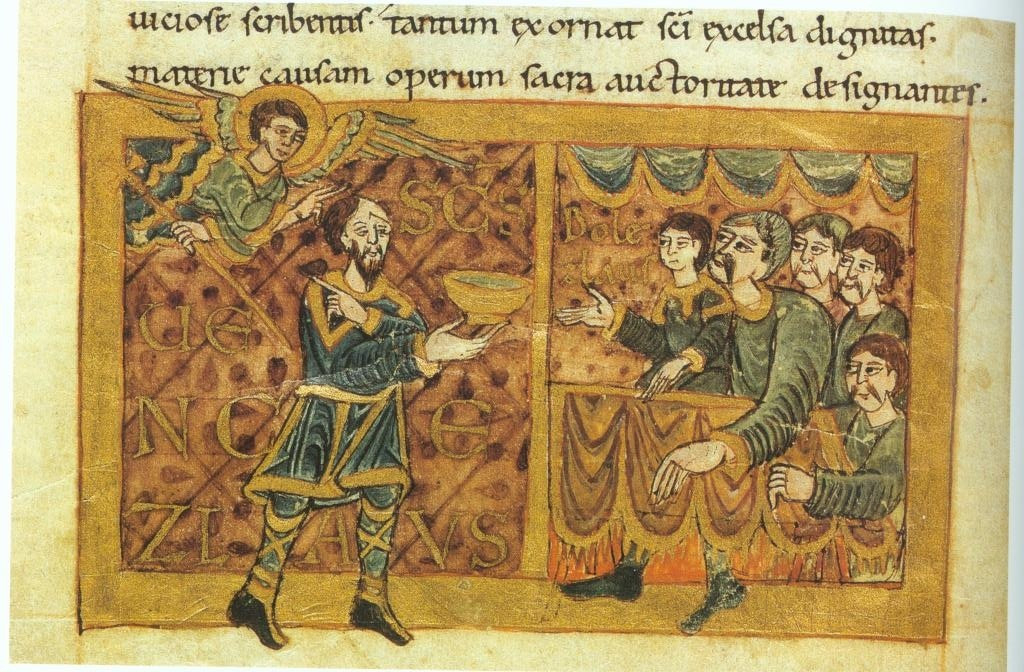 uiciose scribentis· tantum exornat sc̄i excelsa dignitas·
materie causam operum sacra auctoritate designantes.
SCS
UE
NC E
ZLAVS
Bole